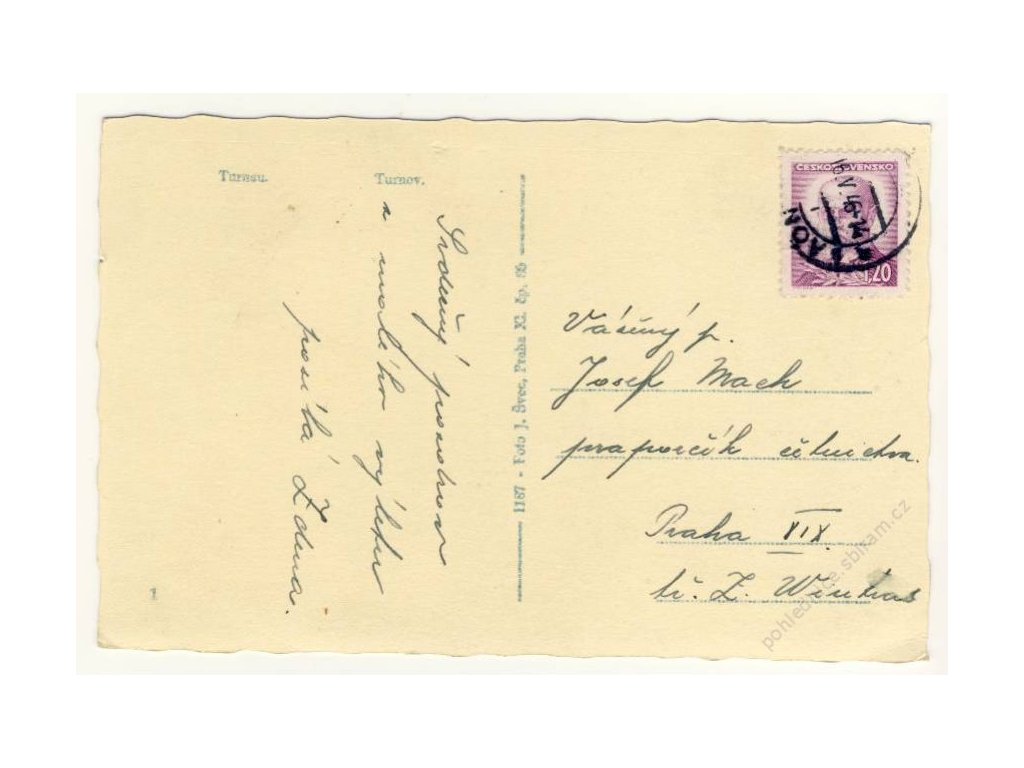 Turnau. Turnov.
Srdečný pozdrav
z malého výletu
posílá Zdena.
1187 - Foto J. Švec, Praha XI. čp. 86
1
ČESKOSLOVENSKO
16.V.46-14
1.20
Vážený p.
Josef Mach
praporčík četnictva.
Praha XIX.
tř. Z. Wintra
pohlednice.sbiram.cz